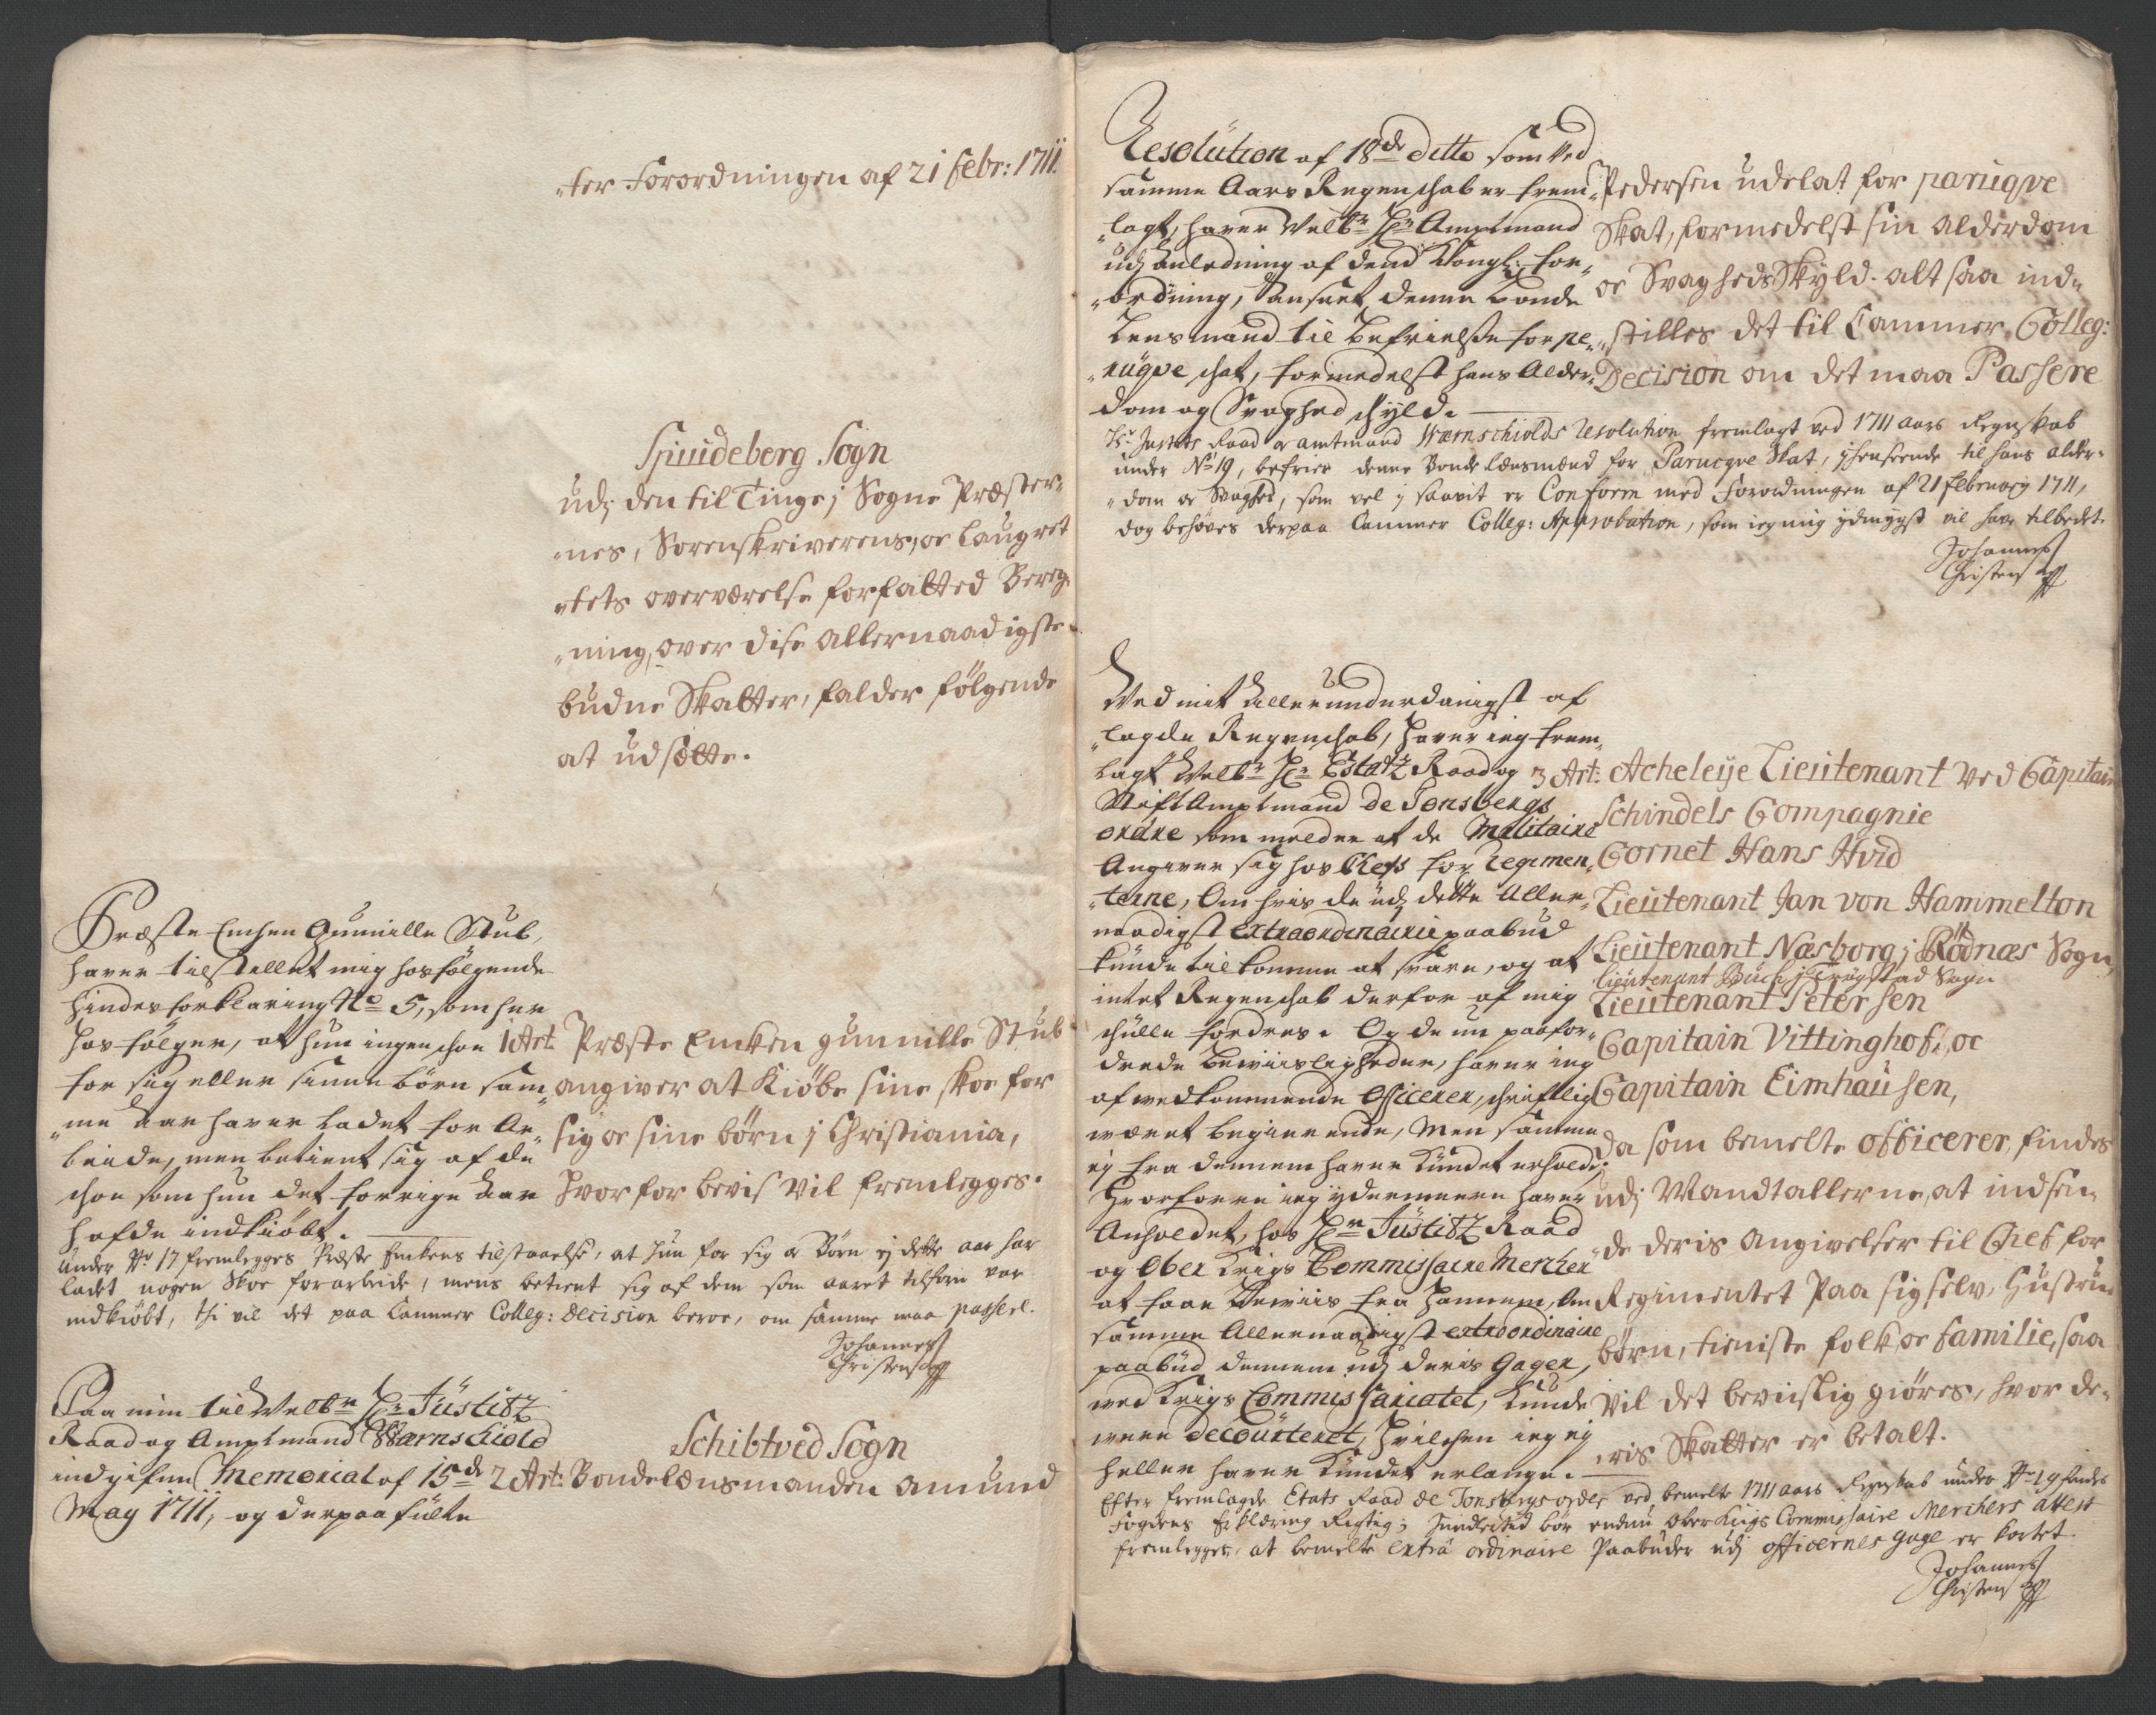 "ter Forordningen af 21 febr: 1711.
Spuideberg Sogn
udj den til Tinge j Sogne Præster-
"nes, Sorenskriverens, oc Laugret
"tets overværelse forfatted Bereg-
"ning, over dise allernaadigste
budne Skatter, falder følgende
at udsætte.
Præste Enchen Gunnille Stub,
haver tilstellet mig hosfølgende
hindes forklaring No 5, som her
hos følger, at hun ingen schoe
for sig eller sinne børn sam-
"me Aar haver ladet for Ar-
beide, men betient sig af de
schoe som hun det forrige Aar
hafde indkiöbt.
1 Art: Præste Encken gunnille Stub
angiver at Kiöbe sine skoe for
sig oc sine børn j Christiania,
hvorfor bevis vil fremlegges.
Under No 17 fremlegges Præste Enckens tilstaaelse, at hun for sig oc Børn ej dette aar har
ladet nogen Skoe forarbeide, mens betient sig af dem som aaret tilforn var
indkiöbt, thi vil det paa Cammer Colleg: decision beroe, om samme maa passere.
Johannes
Christensen
Paa min til Welbr Hr Justitz
Raad og Amptmand Wærnschiold
indgifne Memorial af 15de
May 1711, og derpaa fulte
Schibtved Sogn
2 Art: Bondelænsmanden Amund
Resolution af 18de ditto som ved
samme Aars Regenschab er frem
"lagt, haver Welbr Hr Amptmand
udj Anledning af dend Kongl: for-
"ordning, Ansaet denne Bonde
Lensmand til befrielse for pe-
"rüqve schat, formedelst hans Alder-
dom og Svaghed schyld.
"Pedersen udelat for paruqve
Skat, formedelst sin Alderdom
oc Svagheds Skyld. alt saa ind-
"stilles det til Cammer Colleg:
Decision om det maa Passere
Hr Justits Raad oc amtmand Wærnschiolds resolution fremlagt ved 1711 aars Regnskab
under No 19, befrier denne Bonde lænsmand for Parucqve Skat, j henseende til hans alder-
"dom oc Svaghed, som vel j saavit er Conform med Forordningen af 21 february 1711,
dog behøves derpaa Cammer Colleg: Approbation, som ieg mig ydmygst vil have tilbedet.
Johannes
Christensen
Ved mit Allerunderdanigst af
"lagde Regenschab, haver ieg frem-
lagt Welbr Hr Etatz Raad og
StiftAmptmand de Tonsbergs
ordre som melder at de Militaire
Angiver sig hos Chefs for Regimen-
"terne, Om hvis de udj dette Aller-
naadigst extraordinairie paabud
kunde tilkomme at svare, og at
intet Regenschab derfor af mig
schulle fordres. Og de nu paafor-
drede beviisligheder, haver ieg
af vedkommende Officerer, schriftlig
wæret begierende, Men samme
ej fra dennem haver kundet erholde,
Hvorfore ieg ydermeere haver
Anholdet, hos Hrn Justitz Raad
og Ober Krigs Commissaire Mercher
at faae beviis fra hannem, Om
samme Allernaadigst extraordinaire
paabud dennem udj deris Gager,
ved Krigs Commissariatet, kunde
were decourteret, hvilchen ieg ej
heller haver kundet erlange.
3 Art: Acheleÿe Lieutenant ved Capitain
Schindels Compagnie
Cornet Hans Hvid
Lieutenant Jan von Hammelton
Lieutenant Næsborg j Rödnæs Sogn,
Lieutenant Büch j Trögstad Sogn
Lieutenant Petersen
Capitain Vittinghof, oc
Capitain Eimhausen,
da som bemelte officerer, findes
udj Mandtallerne, at indsen-
"de deris Angivelser til Chef for
Regimentet paa sig selv, Hustrue
børn, tieniste folk, oc familie, saa
vil det beviislig giöres, hvor de-
"ris Skatter er betalt.
Efter fremlagde Etats Raad de Tonsbergs ordre ved bemelte 1711 aars Regnskab under No 19 findes
Fogdens Erklæring Rigtig; Imidlertid bør endnu Ober Kriigs Commissaire Merchers attest
fremlegges, at bemelte extra ordinaire Paabuder udj officernes gage er kortet.
Johannes
Christensen